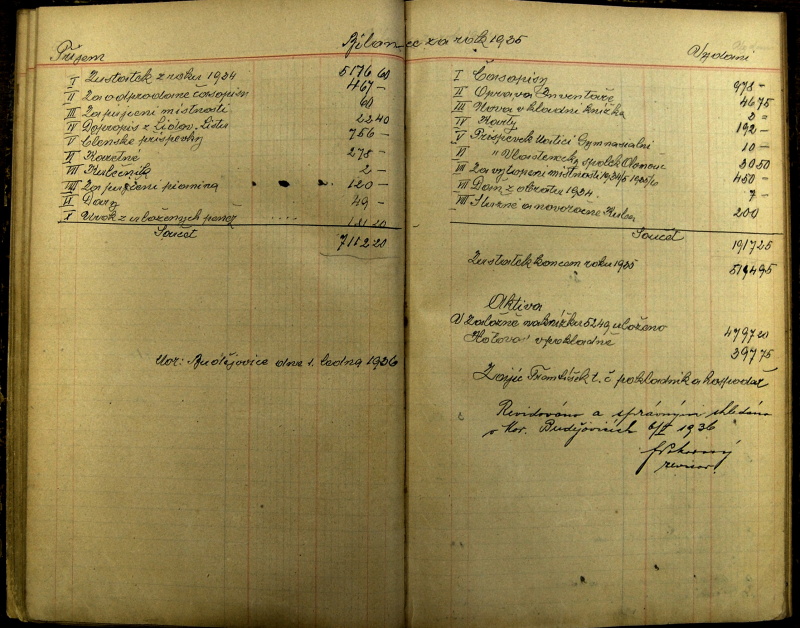 Bilance za rok 1935
Příjem
I Zustatek z roku 1934 5176 60
II Za odprodané časopisy 467 –
III Zapujčení místnosti 60
IV Dopropis z Lidov. Listu 22 40
V Členské příspěvky 756 –
VI Karetné 278 –
VII Kulečník 2 –
VIII Zapujčení pianina 120 –
IX Dary 49 –
X Urok z uložených peněz
Součet 7112 20
Mor: Budějovice dne 1. ledna 1936
Vydání
I Časopisy 978 –
II Oprava Inventáře 46 75
III Nová vkladní knížka 2 =
IV Karty 192 –
V Příspěvek Matici Gymnasialní 10 –
VI " Vlasteneck. spolek Olomouc 30 50
VII Za vytopení místnosti 1934/5 1935/6 450 –
VIII Dam z obratu 1934 7 –
VIII Služné a novoročné 200
Součet 1917 25
Zustatek koncem roku 1935 5194 95
Aktiva
V Záložně na knížku 5249 uloženo 4797 20
Hotově v pokladně 397 75
Zajíc František t. č pokladník a hospodář
Revidováno a správným shledáno
v Mor. Budějovicích 6/II 1936
revisor